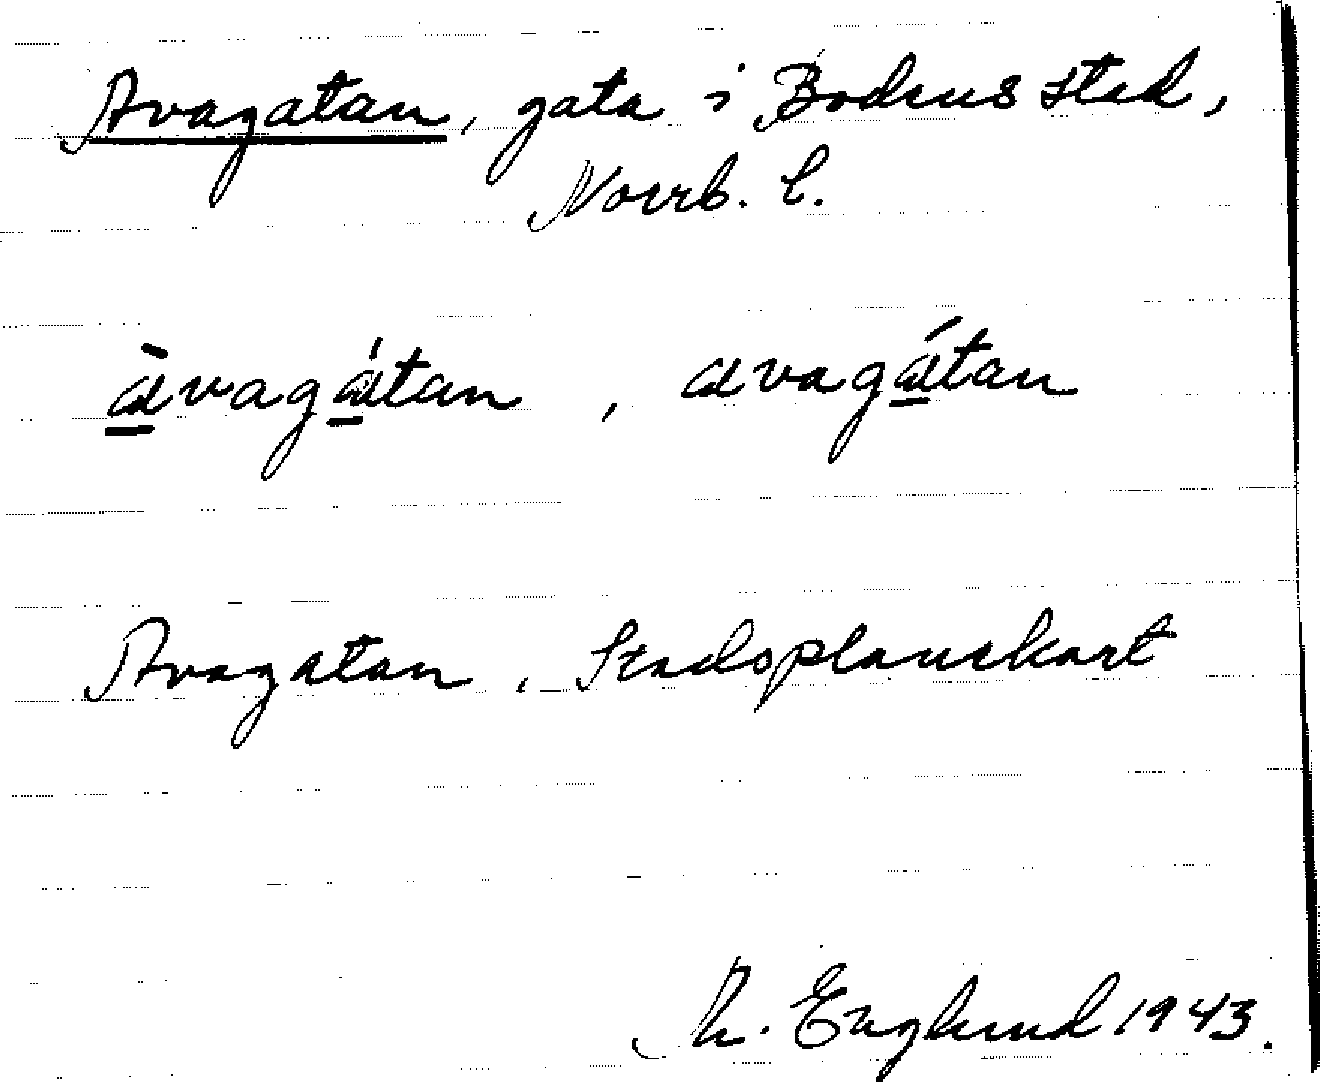 Avagatan, gata i Bodens stad,
Norrb. l.
àvagátan, avagátan
Avagatan. Stadsplanekart
R. Englund 1943.